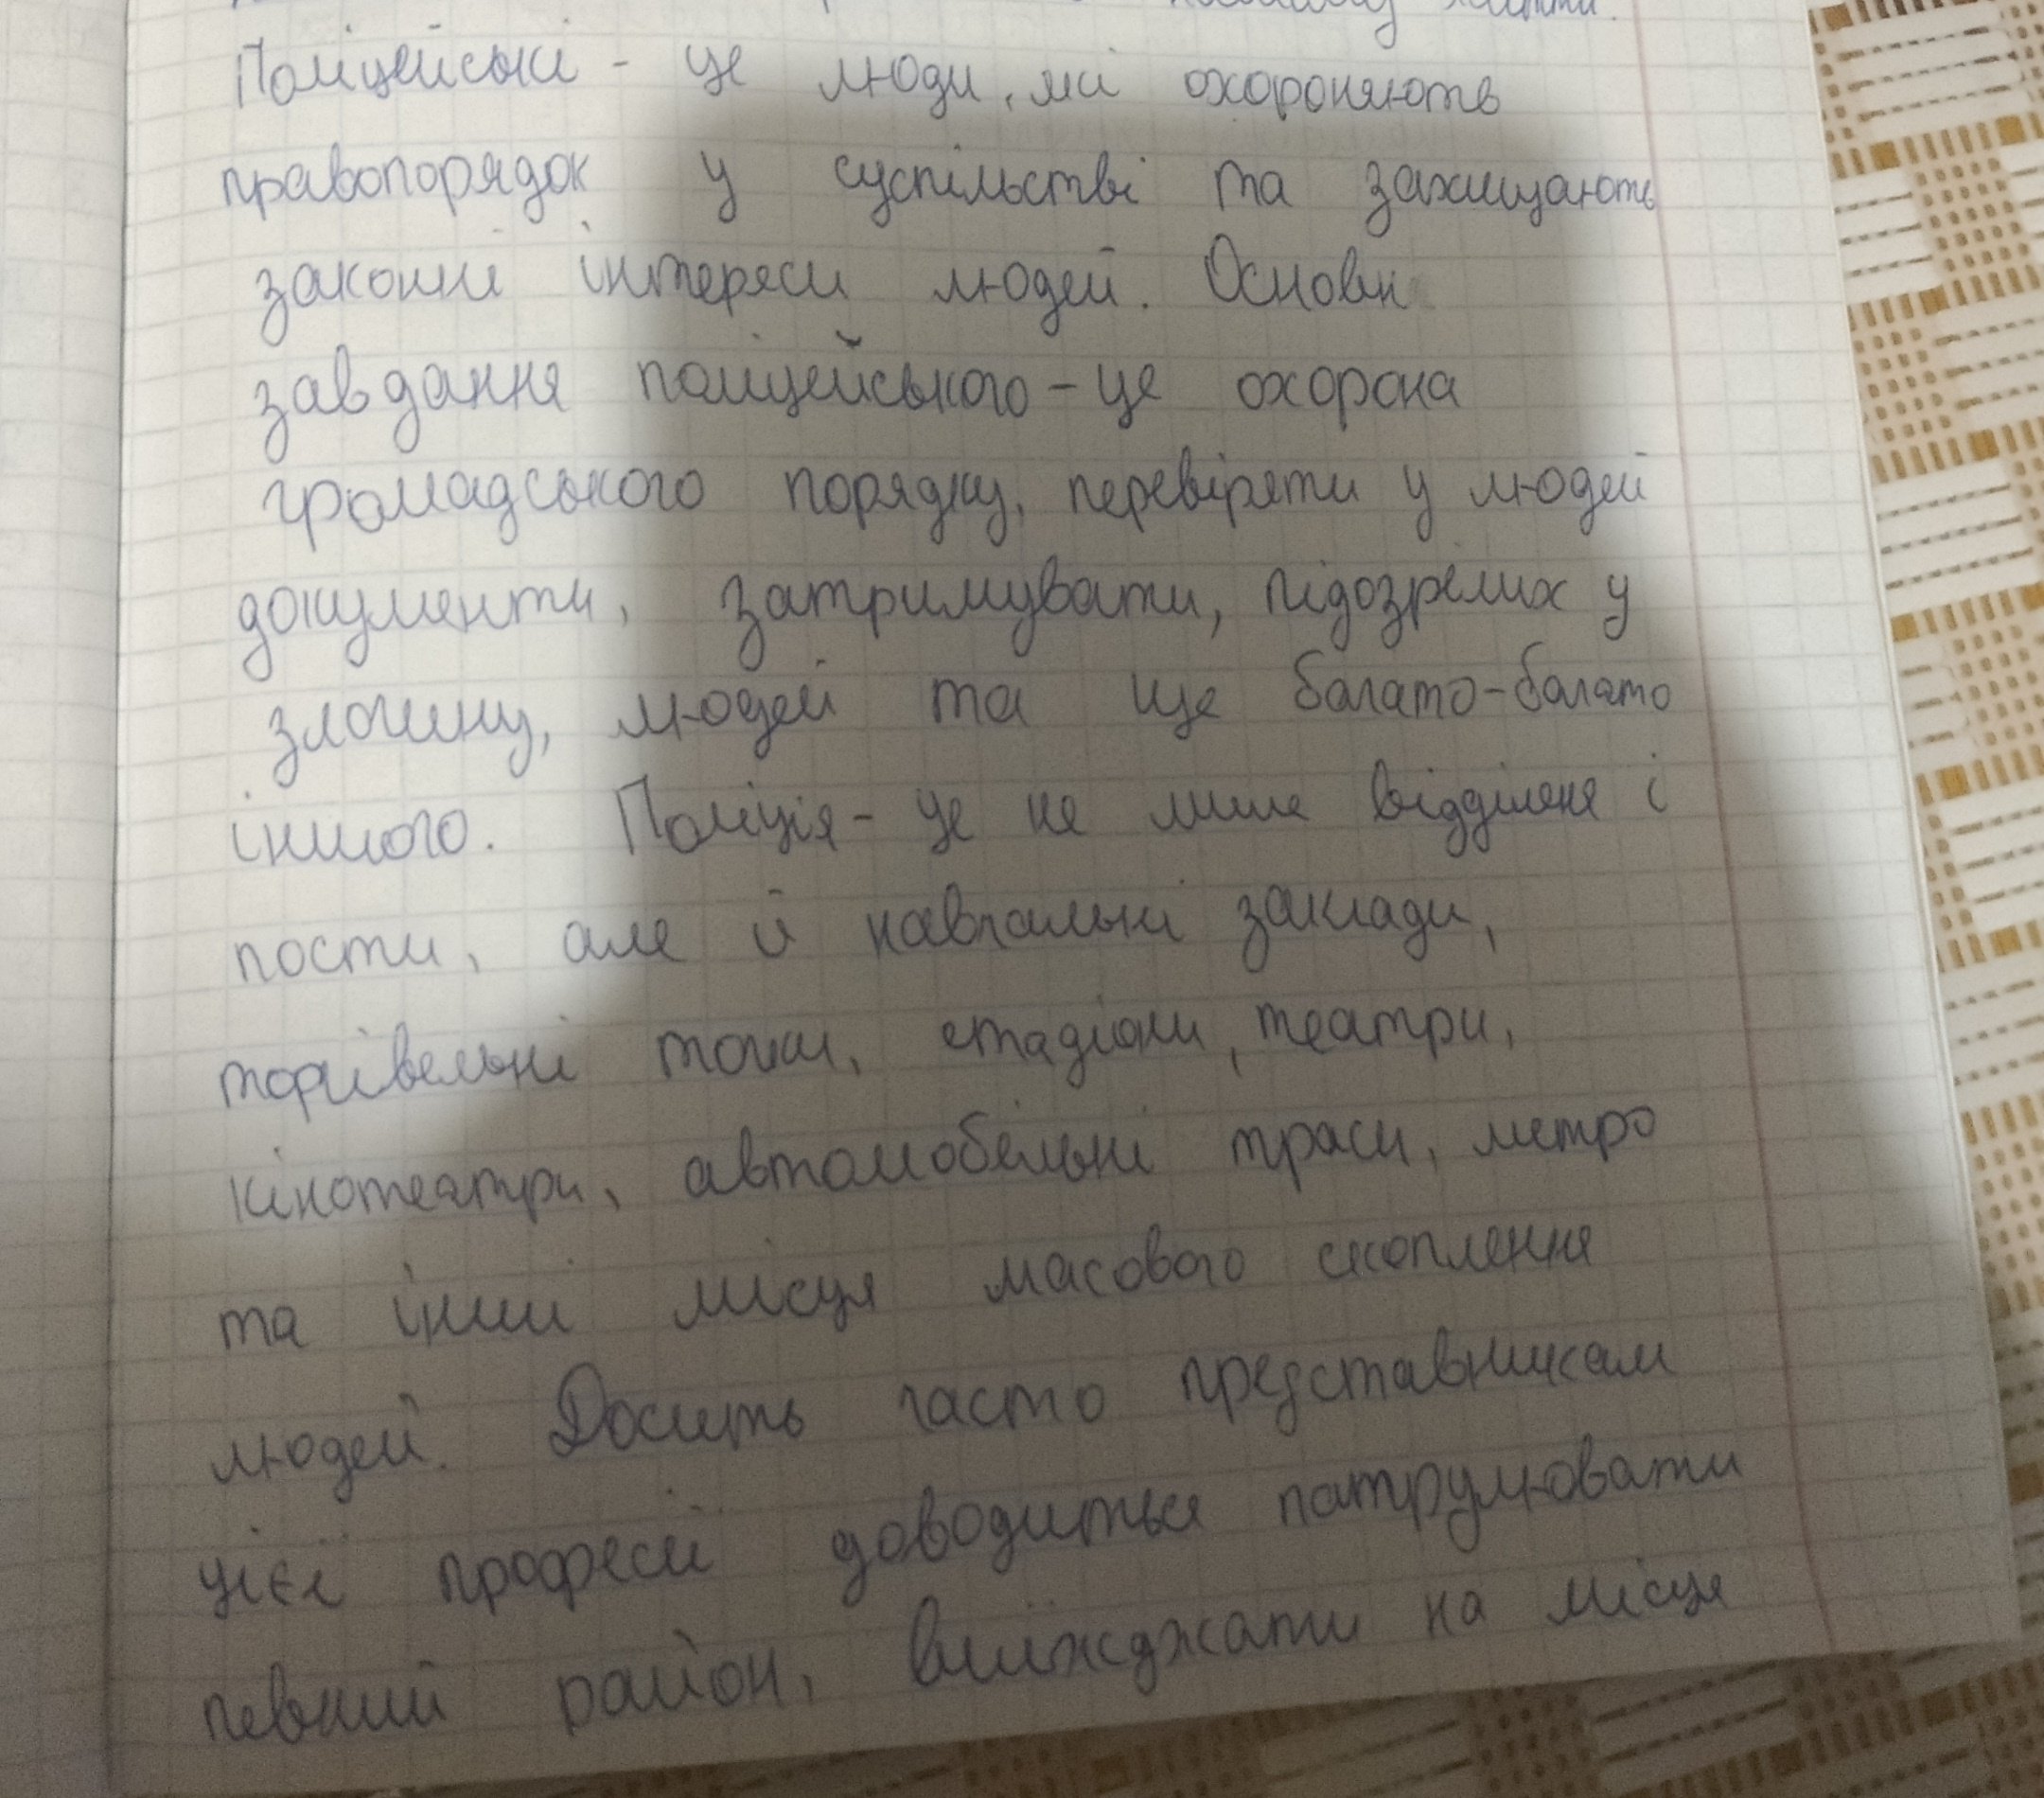 життя.
Поліцейські - це люди, які охороняють
правопорядок у суспільстві та захищають
законні інтереси людей. Основн
завдання поліцейського - це охорона
громадського порядку, перевіряти у людей
документи, затримувати, підозрілих у
злочину, людей та ще багато-багато
іншого. Поліція - це не лише відділеня і
пости, але й навчальні заклади,
торгівельні точки, стадіони, театри,
кінотеатри, автомобільні траси, метро
та інші місця масового скоплення
людей. Досить часто представникам
цієї професії доводиться патрулювати
певний район, виїжджати на місця